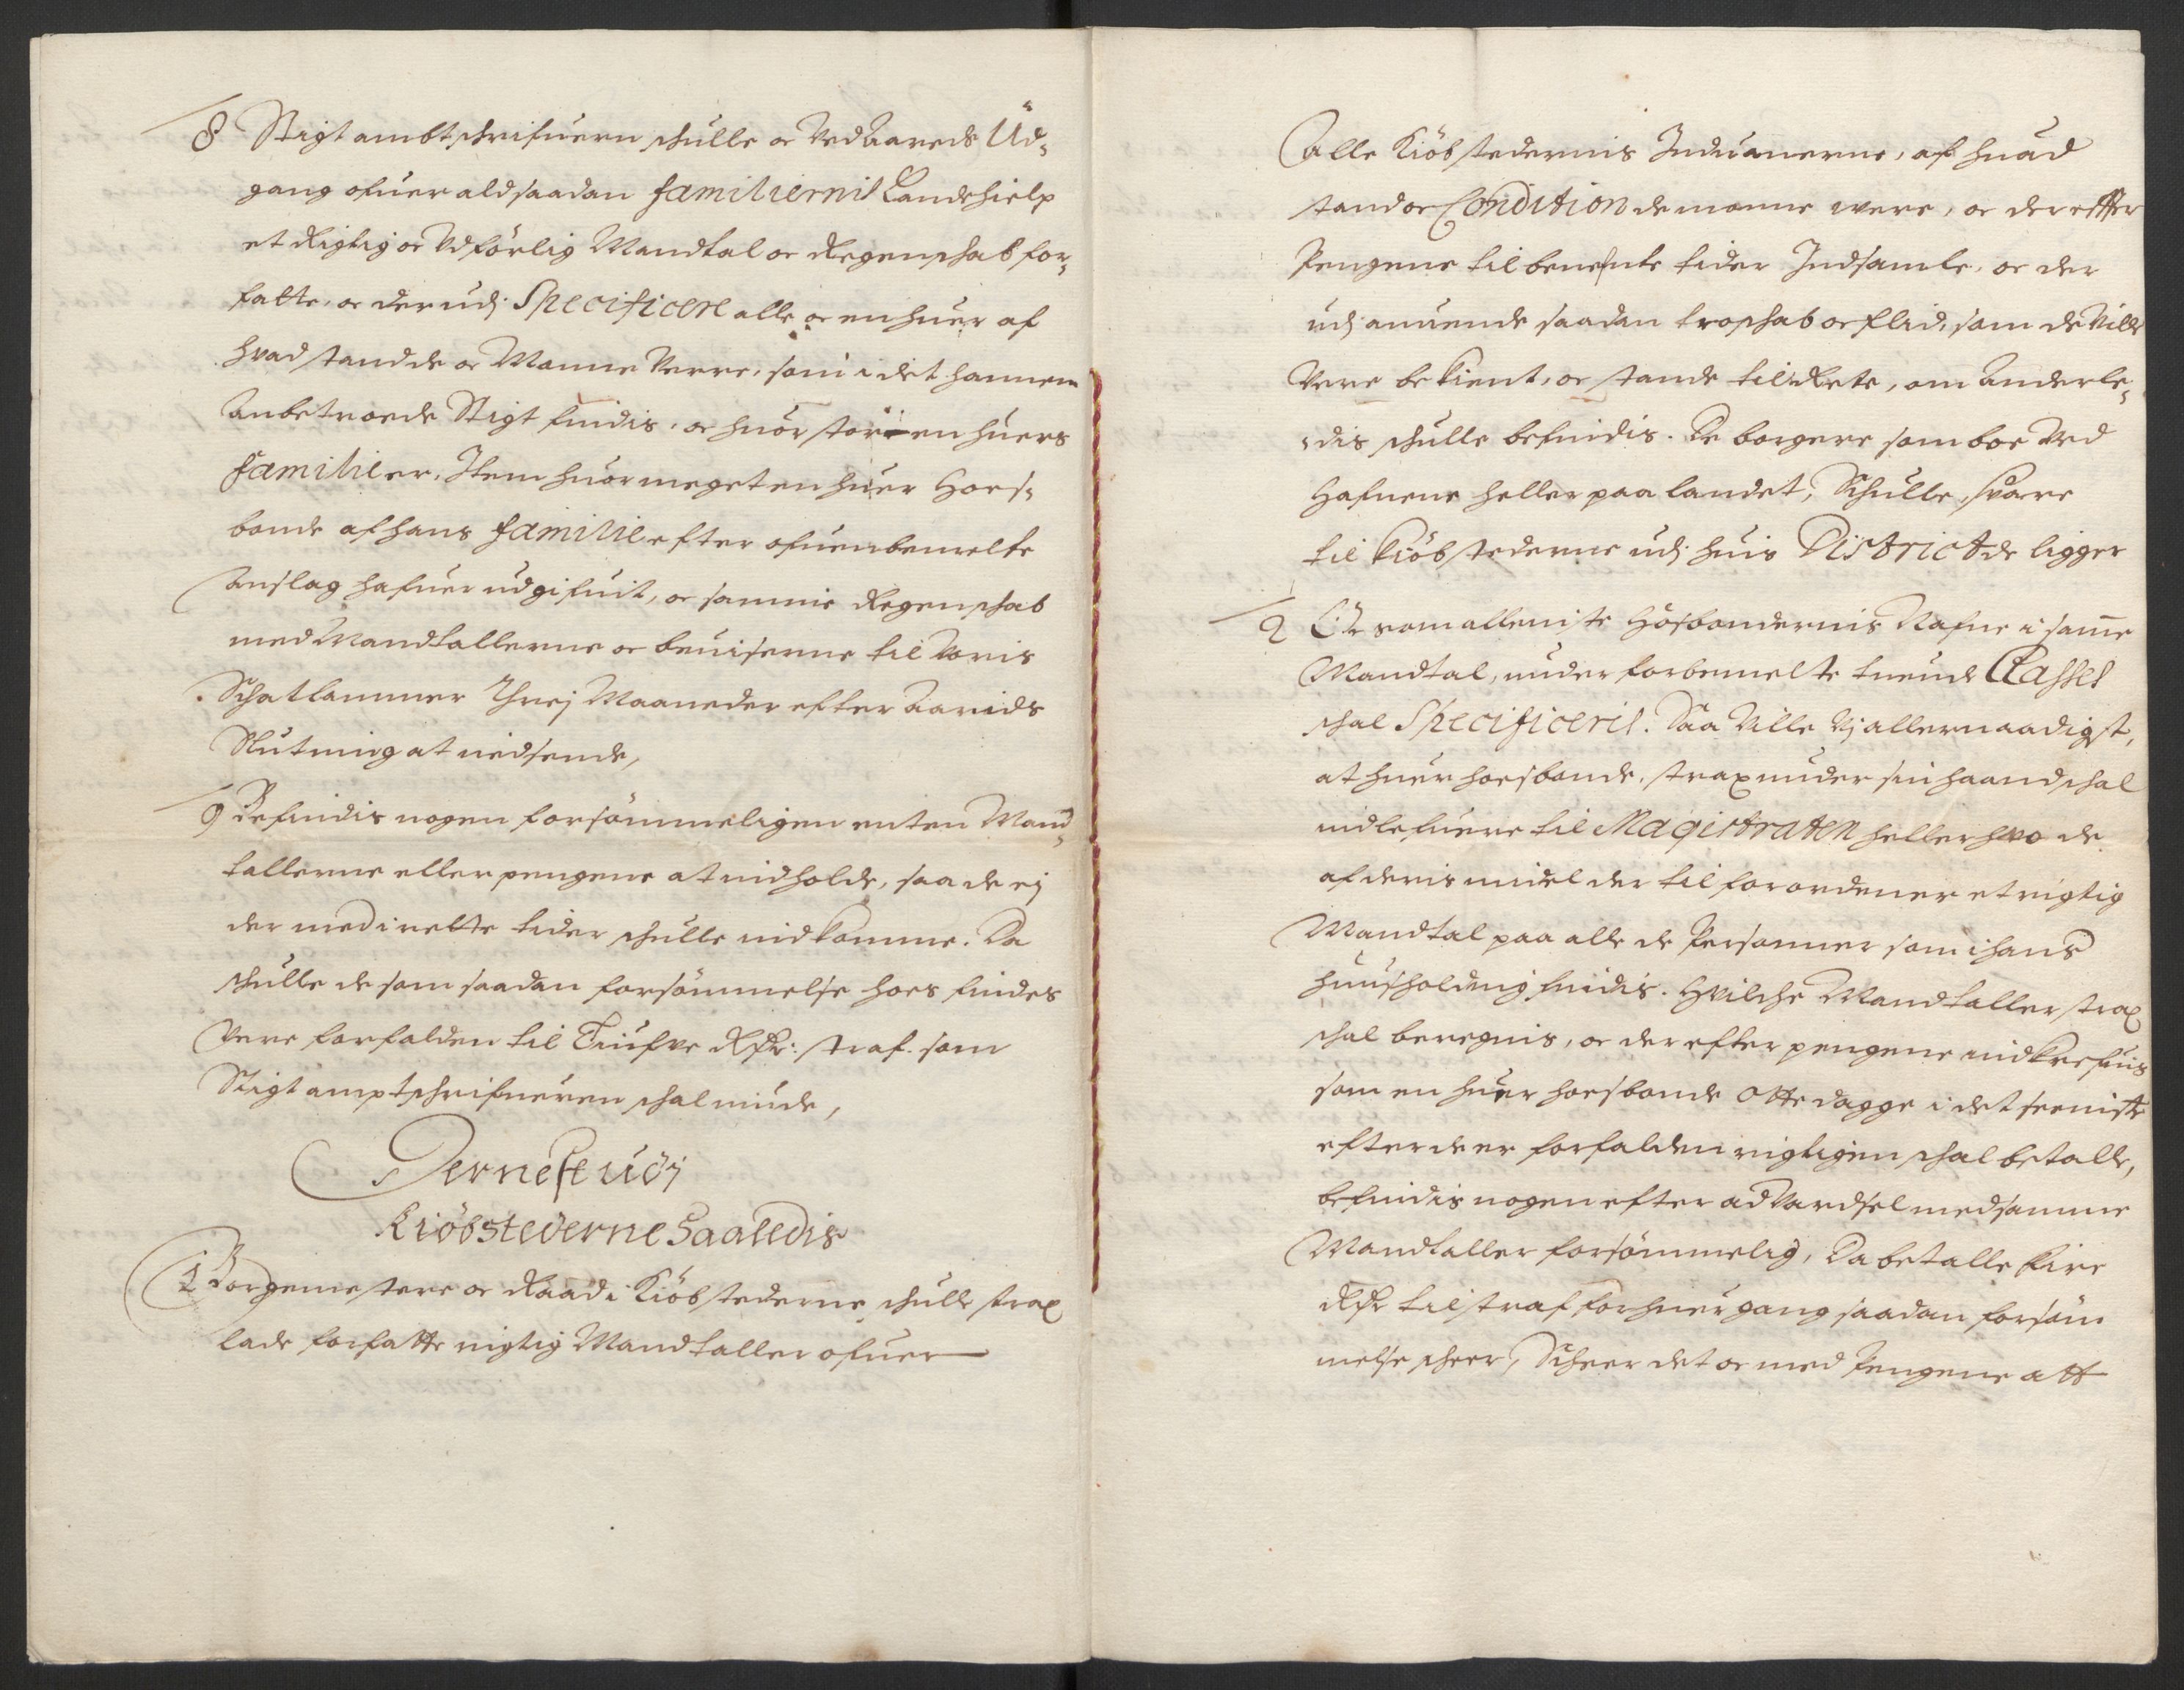 8 Stigtambtschrifuern schulle oc Ved Aareds Ud-
gang ofuer ald saadan familiernis Landehielp
et Rigtig oc Vdförlig Mandtal oc Regenschab for-
fatte, oc derudj Specificere alle oc en huer af
hvad stand de oc Monne Verre, som i det hannem
Anbetroede Stigt findis, oc huor stor en huers
familie er, Item huor meget en huer Hoes-
bonde af hans familie efter ofuenbemelte
Anslag hafuer udgifuit, oc samme Regenschab
med Mandtallerne oc beuiserne til Voris
Schatkammer Threj Maaneder efter Aarids
Slutning at indsende,
9 Befindis nogen forsömmeligen enten Mand-
tallerne eller pengene at indholde, saa de ej
der med i rette tider schulle indkomme. Da
schulle de som saadan forsömmelse hoes findes
Vere forfalden til Tiufve Rdr: straf. som
Stigtamptschrifueren schal inde,
Derneste udj
Kiöbstederne Saaledis
1 Borgemestere oc Raad i Kiöbstederne schulle strax
lade forfatte rigtig Mandtaller ofuer
alle Kiöbstedernis Induonerne, af huad
stand oc Condition de monne were, oc der effter
Pengene til benefnte tider Indsamle, oc der
udj anuende saadan troschab oc flid, som de Ville
Vere bekient, oc stande til Rete, om Anderle-
dis schulle befindis. De borgere som boe Ved
Hafnene heller paa landet, Schulle svare
til Kiöbstederne udj huis District de ligger
2 End som alleniste Hosbondernis Nafne i samme
Mandtal, under forbemelte tuende Classes
schal Specificeris. Saa Ville Vj allernaadigst,
at huer hoesbonde, strax under sin haand schal
indlefuere til Magistraten heller hvo de
af deris midel der til forordener et rigtig
Mandtal paa alle de Personner som i hans
huusholding findis. Hvilche Mandtaller strax
schal beregnis, oc der efter pengene indkrefuis
som en huer hoesbonde Otte dagge i det seeniste
efter de er forfalden rigtigen schal betalle,
befindis nogen efter advardsel med samme
Mandtaller forsömmelig, Da betalle fire
Rdr til straf for huer gang saadan forsöm
melse scheer, Scheer det oc med Pengene att